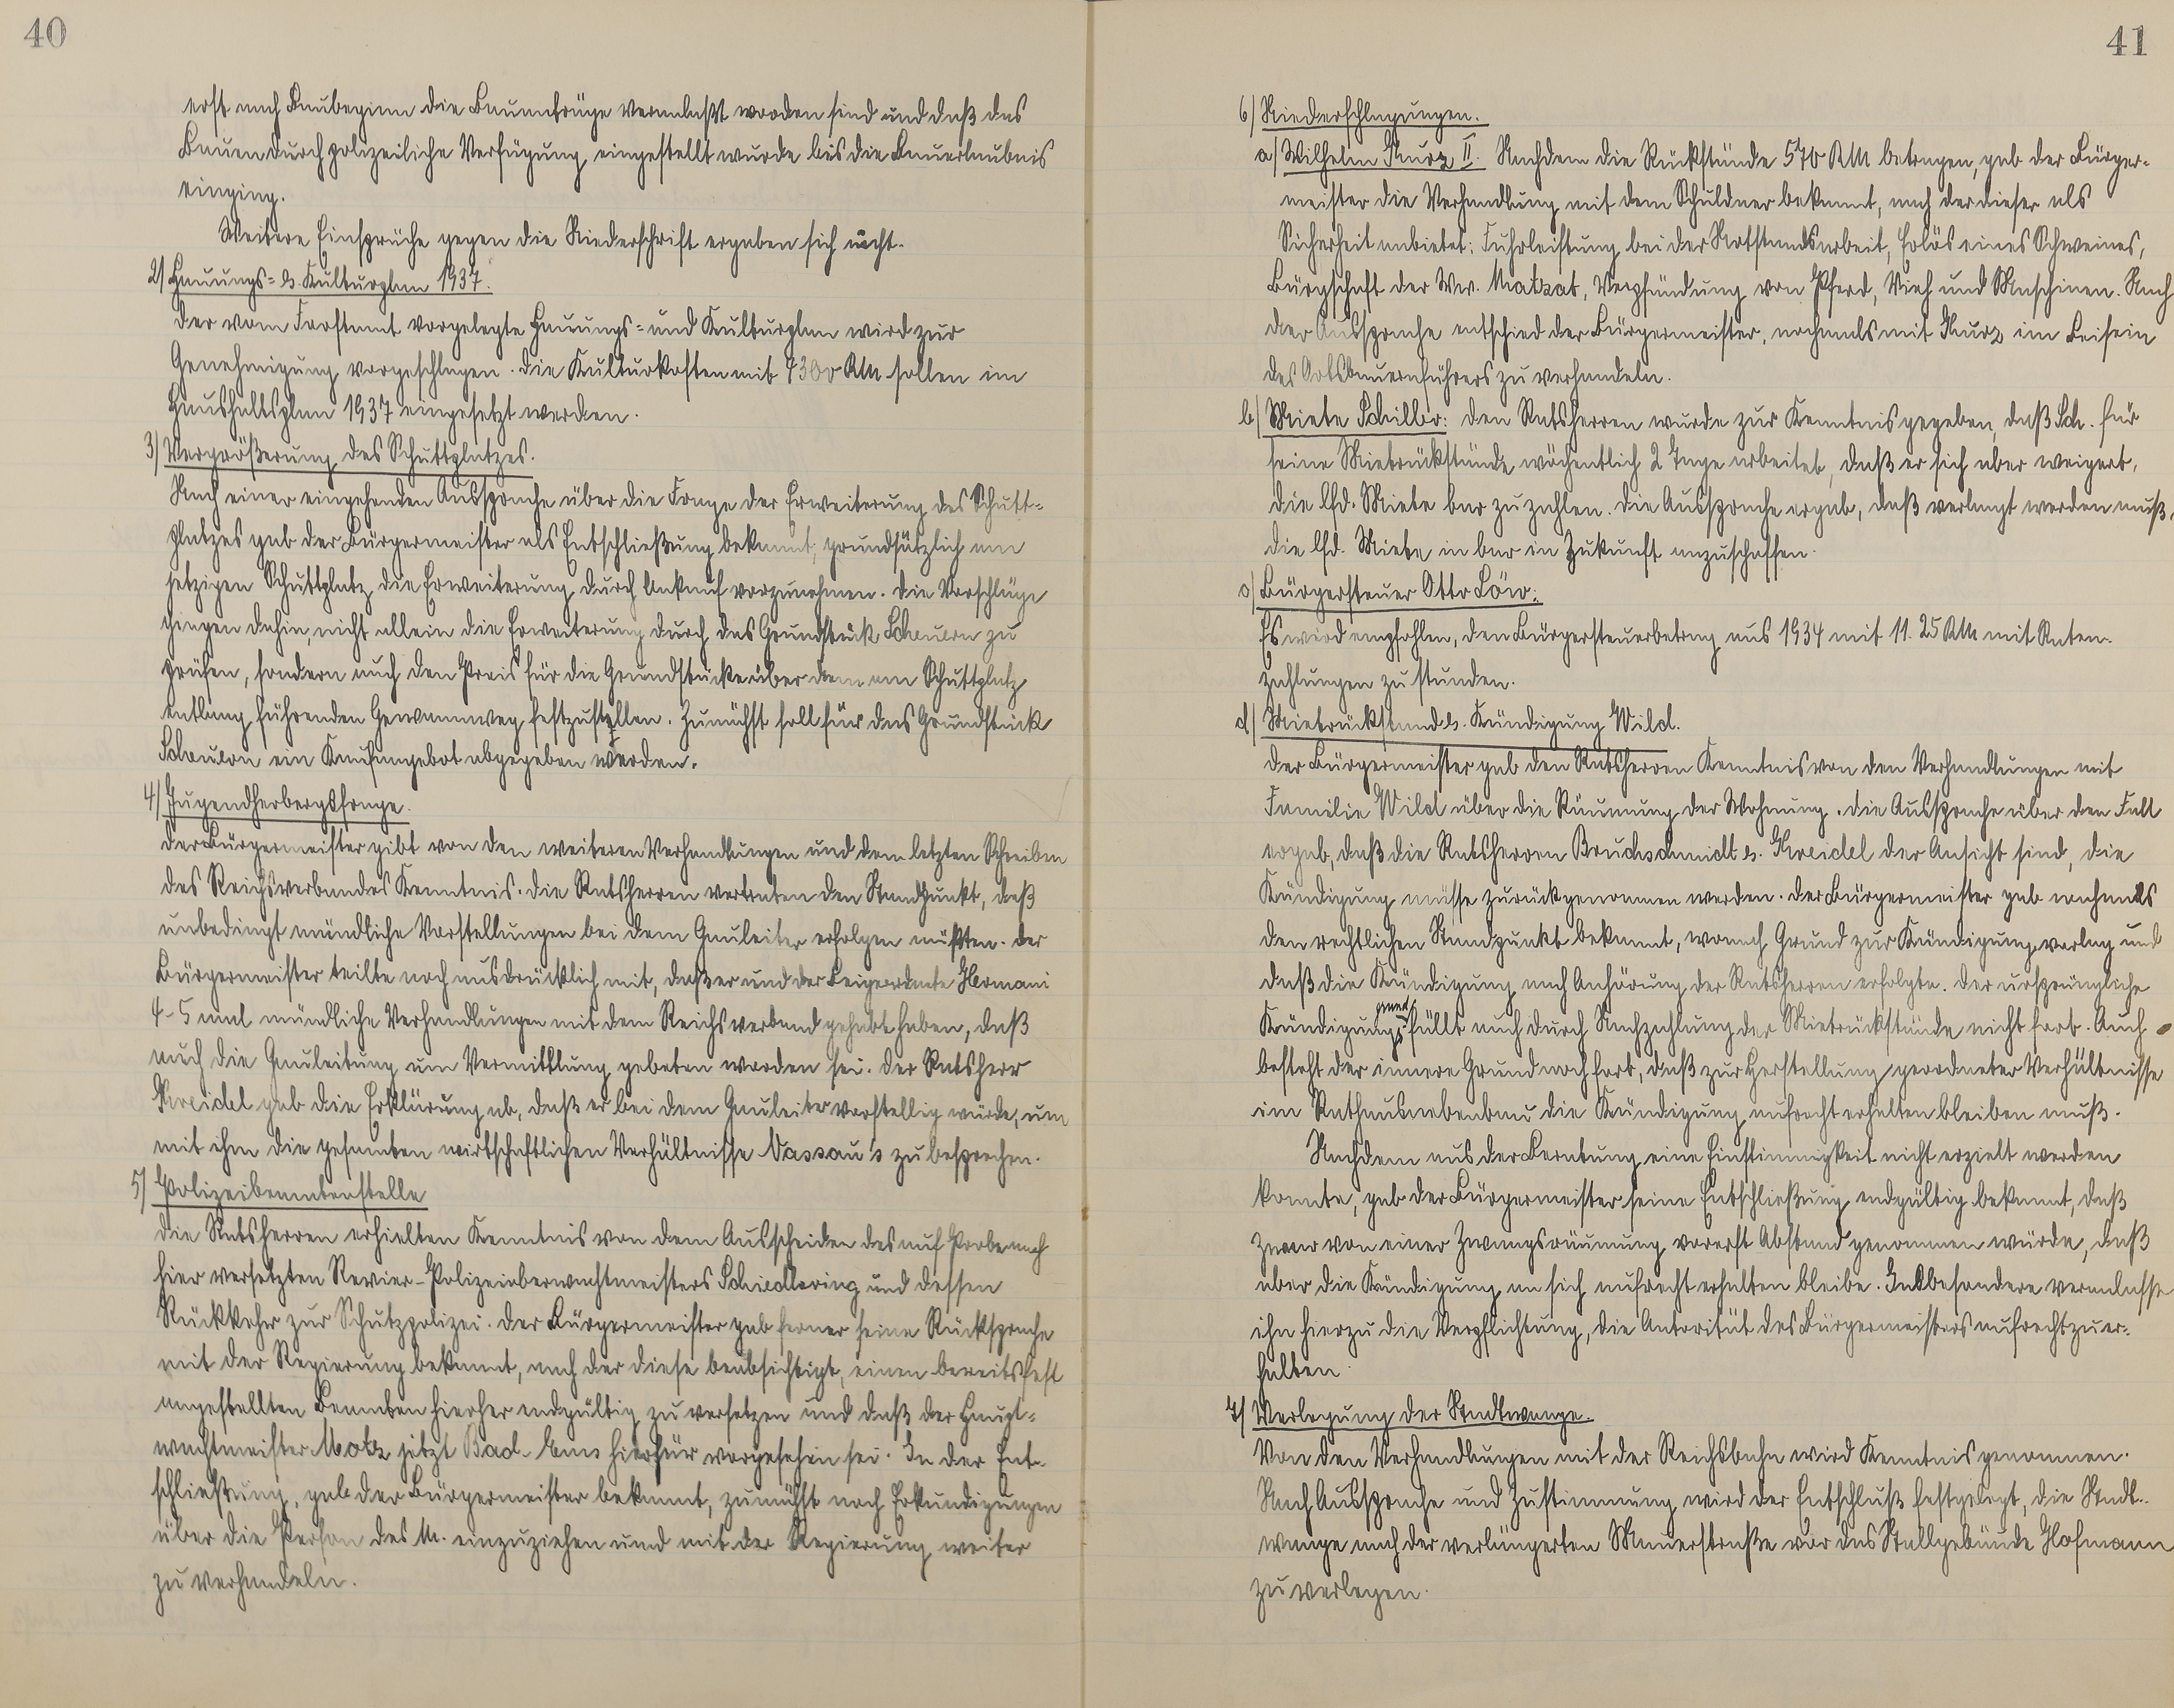 40
erst nach Baubeginn die Bauanträge veranlaßt worden sind und daß das
Bauen durch polizeiliche Verfügung eingestellt wurde bis die Bauerlaubnis
einging.
Weitere Einsprüche gegen die Niederschrift ergaben sich nicht.
2/ Hauungs= u. Kulturplan 1937.
Der vom Forstamt vorgelegte Hauungs= und Kulturplan wird zur
Genehmigung vorgeschlagen. Die Kulturkosten mit 4300 RM sollen im
Haushaltsplan 1937 eingesetzt werden.
3/ Vergrößerung des Schuttplatzes.
Nach einer eingehenden Aussprache über die Frage der Erweiterung des Schutt=
platzes gab der Bürgermeister als Entschließung bekannt, grundsätzlich am
jetzigen Schuttplatz die Erweiterung durch Ankauf vorzunehmen. Die Vorschläge
gingen dahin, nicht allein die Erweiterung durch das Grundstück Schauren zu
prüfen, sondern auch den Preis für die Grundstücke über dem am Schuttplatz
entlang führenden Gewannweg festzustellen. Zunächst soll für das Grundstück
Schauren ein Kaufangebot abgegeben werden.
4/ Jugendherbergsfrage.
Der Bürgermeister gibt von den weiteren Verhandlungen und dem letzten Schreiben
des Reichsverbandes Kenntnis. Die Ratsherren vertraten den Standpunkt, daß
unbedingt mündliche Vorstellungen bei dem Gauleiter erfolgen müßten. Der
Bürgermeister teilte noch ausdrücklich mit, daß er und der Beigeordnete Hermani
4-5 mal mündliche Verhandlungen mit dem Reichsverband gehabt haben, daß
auch die Gauleitung um Vermittlung gebeten worden sei. Der Ratsherr
Kreidel gab die Erklärung ab, daß er bei dem Gauleiter vorstellig würde, um
mit ihm die gesamten wirtschaftlichen Verhältnisse Nassau's zu besprechen.
5/ Polizeibeamtenstelle
Die Ratsherren erhielten Kenntnis von dem Ausscheiden des auf Probe nach
hier versetzten Revier-Polizeioberwachtmeisters Schiedering und dessen
Rückkehr zur Schutzpolizei. Der Bürgermeister gab ferner seine Rücksprache
mit der Regierung bekannt, nach der diese beabsichtigt, einen bereits fest
angestellten Beamten hierher endgültig zu versetzen und daß der Haupt=
wachtmeister Motz jetzt Bad-Ems hierfür vorgesehen sei. In der Ent-
schließung, gab der Bürgermeister bekannt, zunächst noch Erkundigungen
über die Person des M. einzuziehen und mit der Regierung weiter
zu verhandeln.
41
6/ Niederschlagungen.
a/ Wilhelm Kurz II. Nachdem die Rückstände 570 RM betragen, gab der Bürger=
meister die Verhandlung mit dem Schuldner bekannt, nach der dieser als
Sicherheit anbietet: Fuhrleistung bei der Notstandsarbeit, Erlös eines Schweines,
Bürgschaft der Ww. Matzat, Verpfändung von Pferd, Vieh und Maschinen. Nach
der Aussprache entschied der Bürgermeister, nochmals mit Kurz im Beisein
des Ortsbauernführers zu verhandeln.
b/ Miete Schiller: Den Ratsherren wurde zur Kenntnis gegeben, daß Sch. für
seine Mietrückstände wöchentlich 2 Tage arbeitet, daß er sich aber weigert,
die lfd. Miete bar zu zahlen. Die Aussprache ergab, daß verlangt werden muß,
die lfd. Miete in bar in Zukunft anzuschaffen.
c/ Bürgersteuer Otto Löw:
Es wird empfohlen, den Bürgersteuerbetrag aus 1934 mit 11.25 RM mit Raten-
zahlungen zu stunden.
d/ Mietrückstand u. Kündigung Wild.
Der Bürgermeister gab den Ratsherren Kenntnis von den Verhandlungen mit
Familie Wild über die Räumung der Wohnung. Die Aussprache über den Fall
ergab, daß die Ratsherren Bruchschmidt u. Kreidel der Ansicht sind, die
Kündigung müsse zurückgenommen werden. Der Bürgermeister gab nochmals
den rechtlichen Standpunkt bekannt, wonach Grund zur Kündigung vorlag und
daß die Kündigung nach Anhörung der Ratsherren erfolgte. Der ursprüngliche
Kündigungsgrund fällt auch durch Nachzahlung der Mietrückstände nicht fort. Auch
besteht der innere Grund noch fort, daß zur Herstellung geordneter Verhältnisse
im Rathausnebenbau die Kündigung aufrecht erhalten bleiben muß.
Nachdem aus der Beratung eine Einstimmigkeit nicht erzielt werden
konnte, gab der Bürgermeister seine Entschließung endgültig bekannt, daß
zwar von einer Zwangsräumung vorerst Abstand genommen würde, daß
aber die Kündigung an sich aufrecht erhalten bleibe. Insbesondere veranlasse
ihn hierzu die Verpflichtung, die Autorität des Bürgermeisters aufrecht zu er-
halten.
7/ Verlegung der Stadtwaage.
Von den Verhandlungen mit der Reichsbahn wird Kenntnis genommen.
Nach Aussprache und Zustimmung wird der Entschluß festgelegt, die Stadt-
waage nach der verlängerten Mauerstraße vor das Stallgebäude Hofmann
zu verlegen.